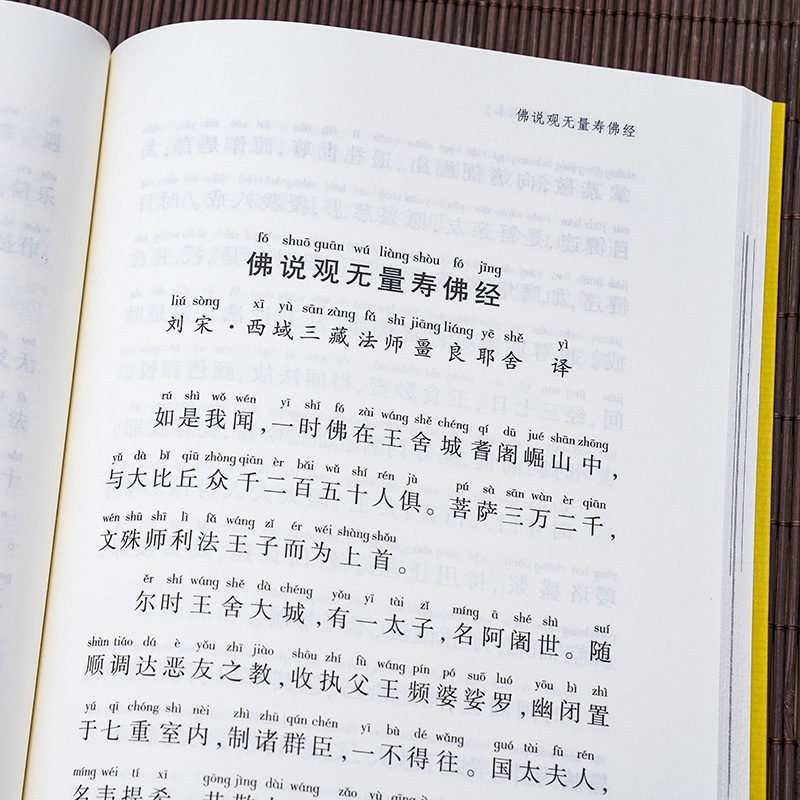 佛说观无量寿佛经
fó shuō guān wú liàng shòu fó jīng
佛说观无量寿佛经
liú sòng xī yù sān zàng fǎ shī jiāng liáng yē shě yì
刘宋·西域三藏法师畺良耶舍 译
rú shì wǒ wén yī shí fó zài wáng shě chéng qí dū jué shān zhōng
如是我闻,一时佛在王舍城耆阇崛山中,
yǔ dà bǐ qiū zhòng qiān èr bǎi wǔ shí rén jù pú sà sān wàn èr qiān
与大比丘众千二百五十人俱。菩萨三万二千,
wén shū shī lì fǎ wáng zǐ ér wéi shàng shǒu
文殊师利法王子而为上首。
ěr shí wáng shě dà chéng yǒu yī tài zǐ míng ā shé shì suí
尔时王舍大城,有一太子,名阿阇世。随
shùn tiáo dá è yǒu zhī jiào shōu zhí fù wáng pín pó suō luó yōu bì zhì
顺调达恶友之教,收执父王频婆娑罗,幽闭置
yú qī chóng shì nèi zhì zhū qún chén yī bù dé wǎng guó tài fū rén
于七重室内,制诸群臣,一不得往。国太夫人,
míng wéi tí xī gōng jìng dài wáng zǎo yù
名韦提希